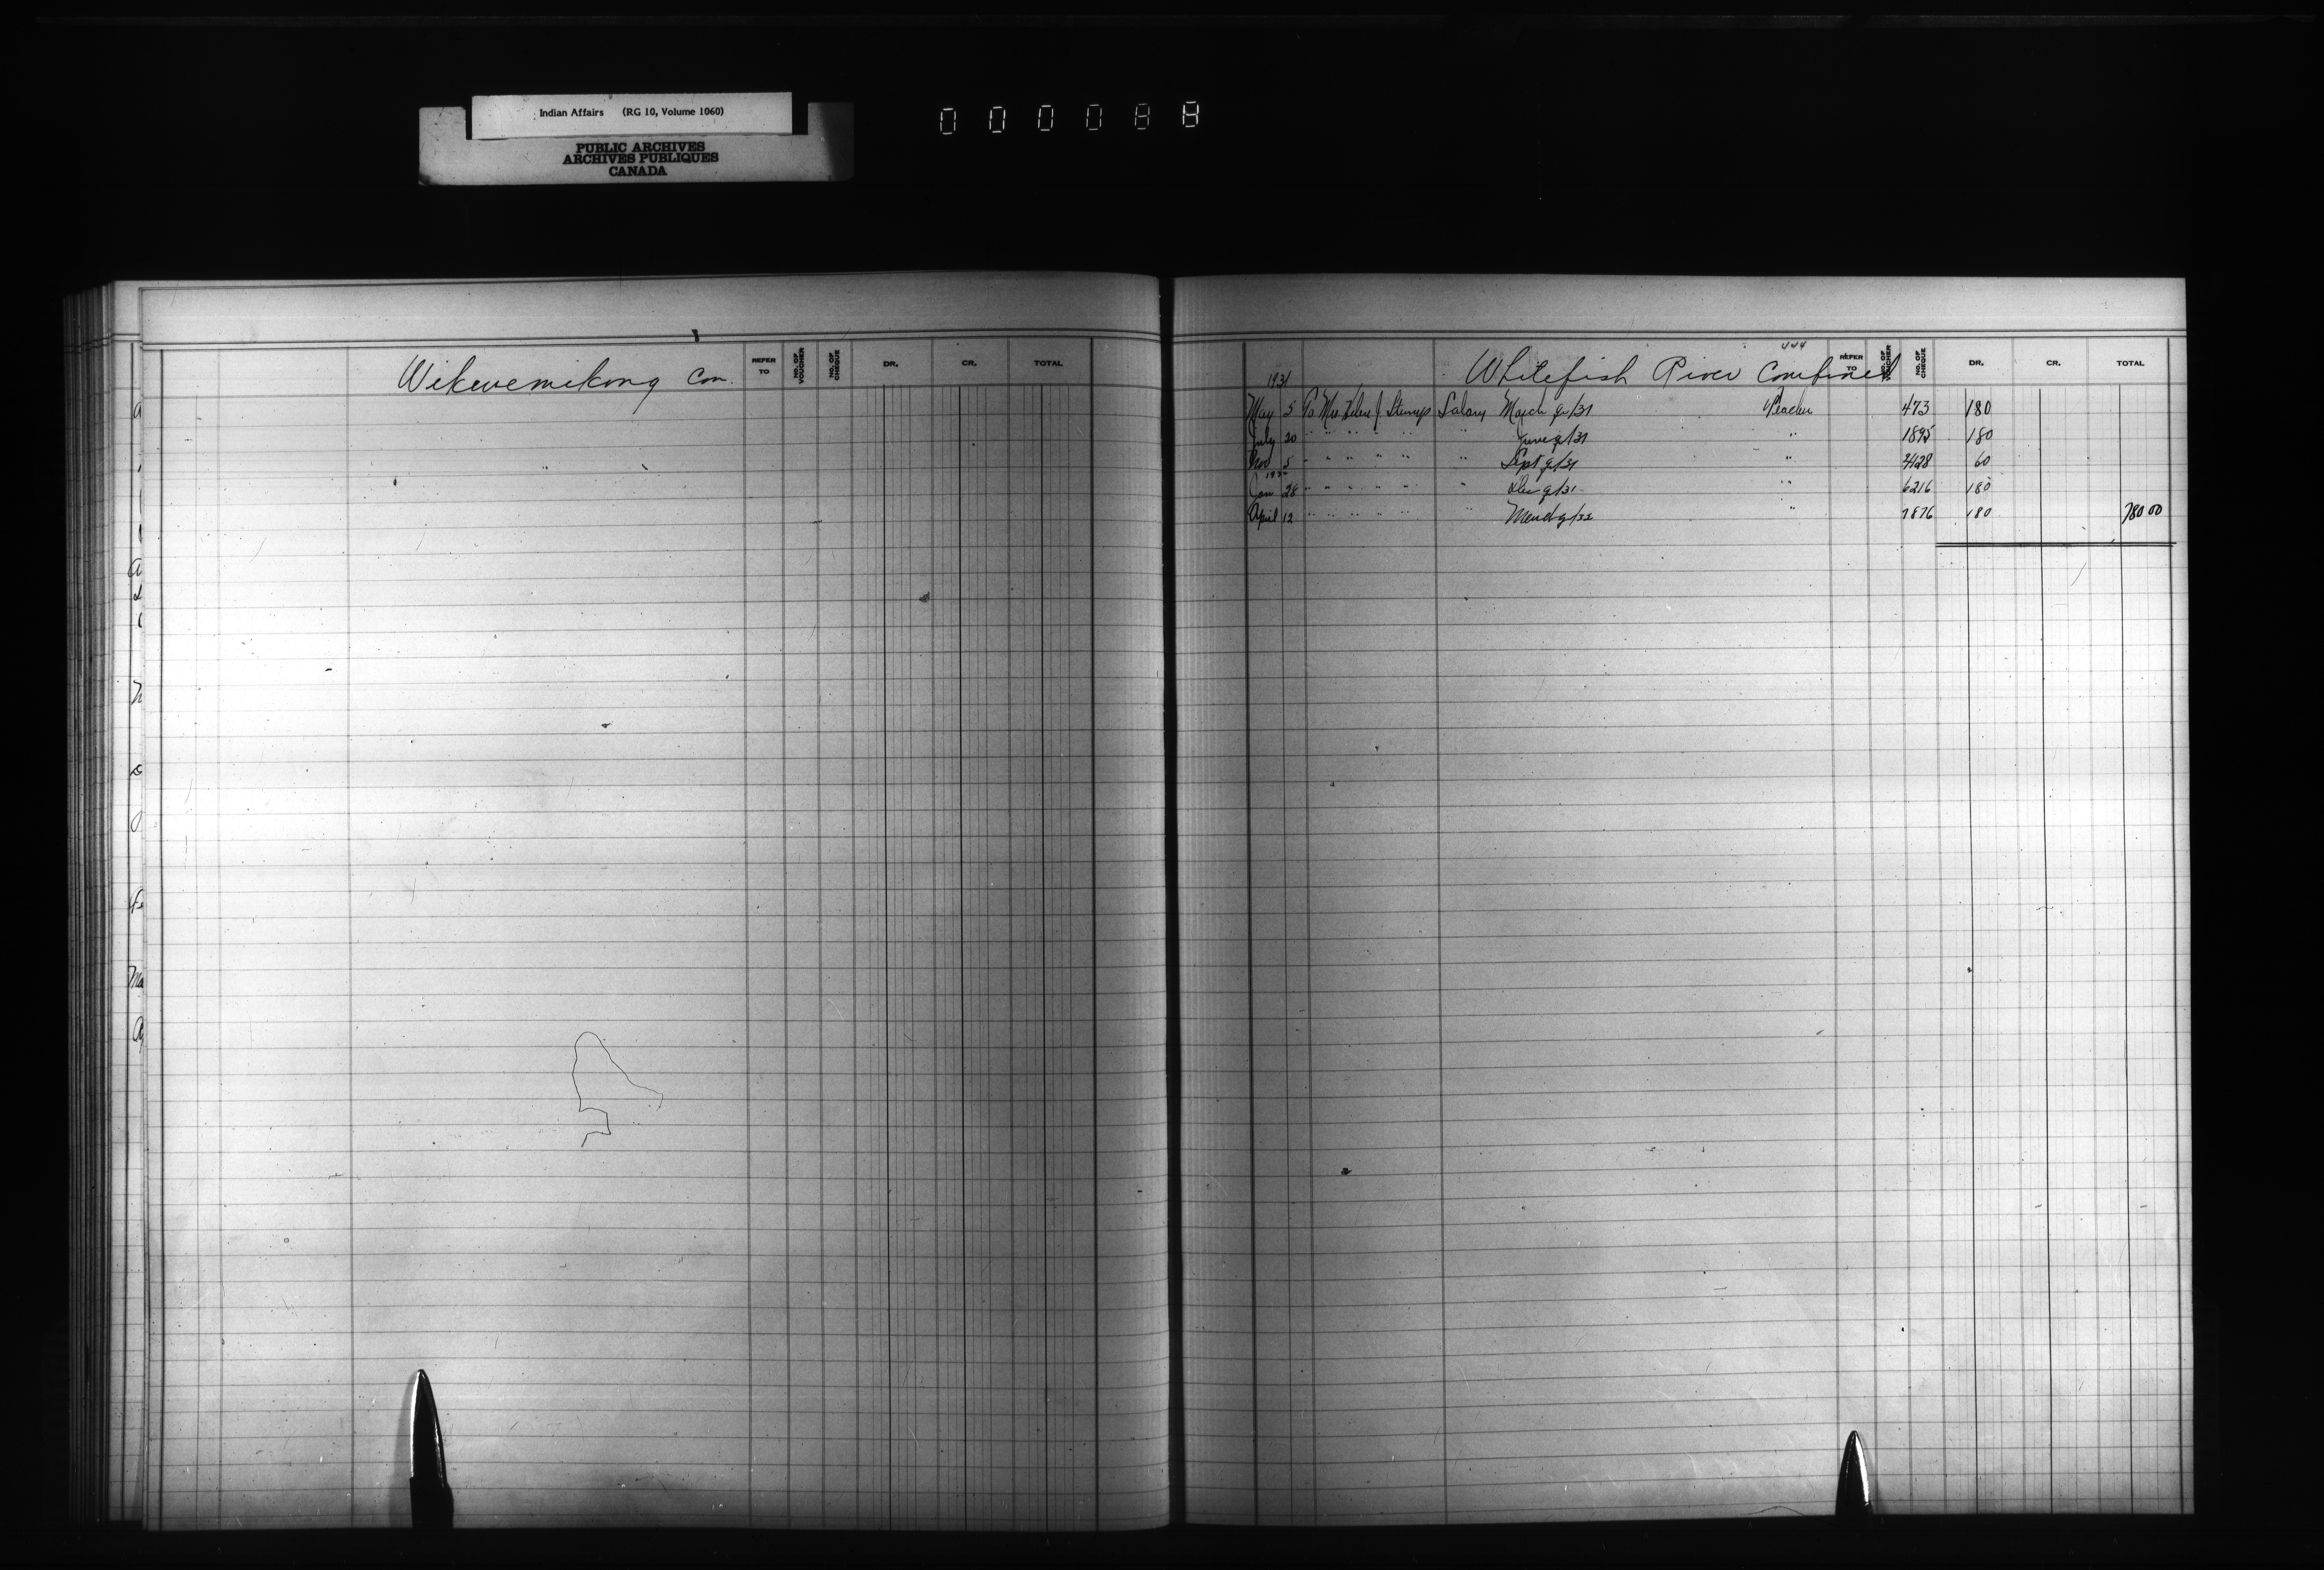 Indian Affairs (RG 10, Volume 1060)
PUBLIC ARCHIVES
ARCHIVES PUBLIQUES
CANADA
000088
Wikwemikong Con.
REFER TO NO. OF VOUCHER NO. OF CHEQUE DR. CR. TOTAL
444
Whitefish River Combined
REFER TO NO. OF VOUCHER NO. OF CHEQUE DR. CR. TOTAL
1931
May 5 To Mrs. J. Salary March qr/31 Teacher 473 180
July 20 " " " " " " June qr/31 " 1895 180
Nov 5 " " " " " " Sept qr/31 " 4128 60
1932
Jan 28 " " " " " " Dec qr/31 " 6216 180
April 12 " " " " " " March qr/32 " 7876 180 780 00